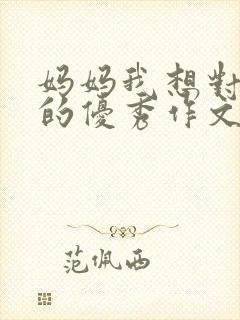 妈妈我想對
的優秀作文
范佩西